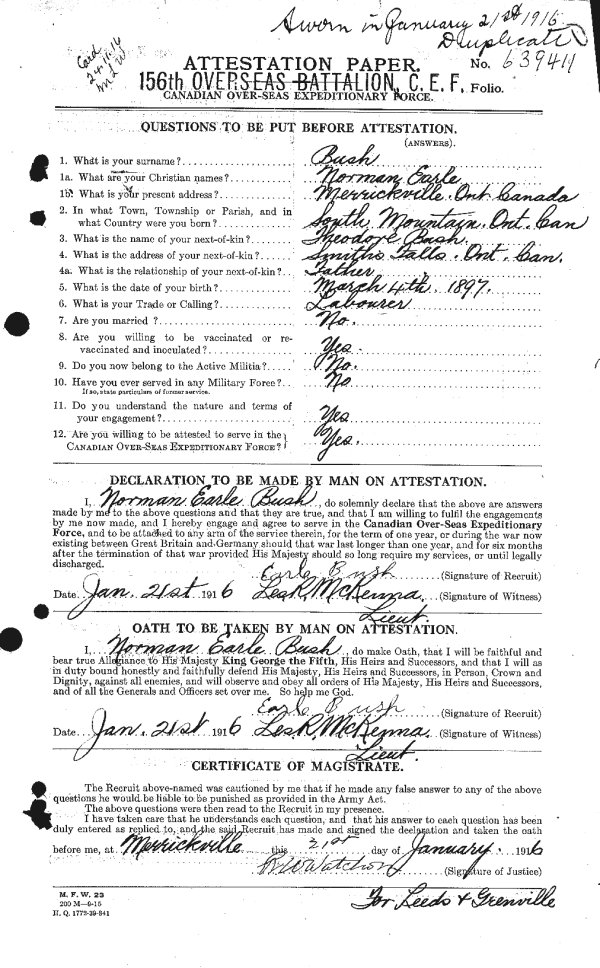 Sworn in January 21st 1916
Duplicate
Card
24-11-16
ATTESTATION PAPER.
No. 639411
156th OVERSEAS BATTALION, C. E. F.
Folio.
CANADIAN OVER-SEAS EXPEDITIONARY FORCE.
QUESTIONS TO BE PUT BEFORE ATTESTATION.
(ANSWERS).
1. What is your surname? Bush
1a. What are your Christian names? Norman Earle
1b. What is your present address? Merrickville. Ont. Canada
2. In what Town, Township or Parish, and in
what Country were you born? South Mountain. Ont. Can
3. What is the name of your next-of-kin? Theodore Bush.
4. What is the address of your next-of-kin? Smiths Falls. Ont. Can.
4a. What is the relationship of your next-of-kin? Father
5. What is the date of your birth? March 4th. 1897.
6. What is your Trade or Calling? Labourer
7. Are you married ? No.
8. Are you willing to be vaccinated or re-
vaccinated and inoculated? Yes.
9. Do you now belong to the Active Militia? No.
10. Have you ever served in any Military Force? No
If so, state particulars of former service.
11. Do you understand the nature and terms of
your engagement? Yes
12. Are you willing to be attested to serve in the
CANADIAN OVER-SEAS EXPEDITIONARY FORCE? Yes.
DECLARATION TO BE MADE BY MAN ON ATTESTATION.
I, Norman Earle Bush, do solemnly declare that the above are answers
made by me to the above questions and that they are true, and that I am willing to fulfil the engagements
by me now made, and I hereby engage and agree to serve in the Canadian Over-Seas Expeditionary
Force, and to be attached to any arm of the service therein, for the term of one year, or during the war now
existing between Great Britain and Germany should that war last longer than one year, and for six months
after the termination of that war provided His Majesty should so long require my services, or until legally
discharged.
Earle Bush (Signature of Recruit)
Date Jan. 21st 1916 Les R. McKenna (Signature of Witness)
Lieut.
OATH TO BE TAKEN BY MAN ON ATTESTATION.
I, Norman Earle Bush, do make Oath, that I will be faithful and
bear true Allegiance to His Majesty King George the Fifth, His Heirs and Successors, and that I will as
in duty bound honestly and faithfully defend His Majesty, His Heirs and Successors, in Person, Crown and
Dignity, against all enemies, and will observe and obey all orders of His Majesty, His Heirs and Successors,
and of all the Generals and Officers set over me. So help me God.
Earle Bush (Signature of Recruit)
Date Jan. 21st 1916 Les R. McKenna (Signature of Witness)
Lieut
CERTIFICATE OF MAGISTRATE.
The Recruit above-named was cautioned by me that if he made any false answer to any of the above
questions he would be liable to be punished as provided in the Army Act.
The above questions were then read to the Recruit in my presence.
I have taken care that he understands each question, and that his answer to each question has been
duly entered as replied to, and the said Recruit has made and signed the declaration and taken the oath
before me, at Merrickville this 21st day of January. 1916
Watchorn (Signature of Justice)
M. F. W. 23
200 M—9-15
H. Q. 1772-39-841
For Leeds & Grenville